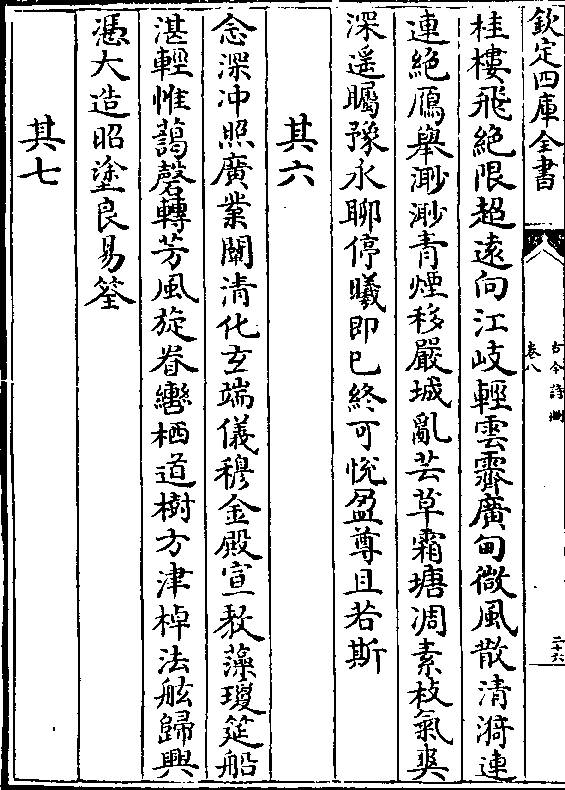 欽定四庫全書
古今詩刪
卷八
二十六
桂樓飛絕限超遠向江岐輕雲霽廣甸微風散清漪連
連絕鴈舉渺渺青煙移嚴城亂芸草霜塘凋素枝氣爽
深遥矚豫永聊停曦即已終可悅盈尊且若斯
其六
念深冲照廣業闡清化玄端儀穆金殿宣敎藻瓊筵船
湛輕惟藹磬轉芳風旋眷轡栖道樹方津棹法舷歸興
憑大造昭塗良易筌
其七